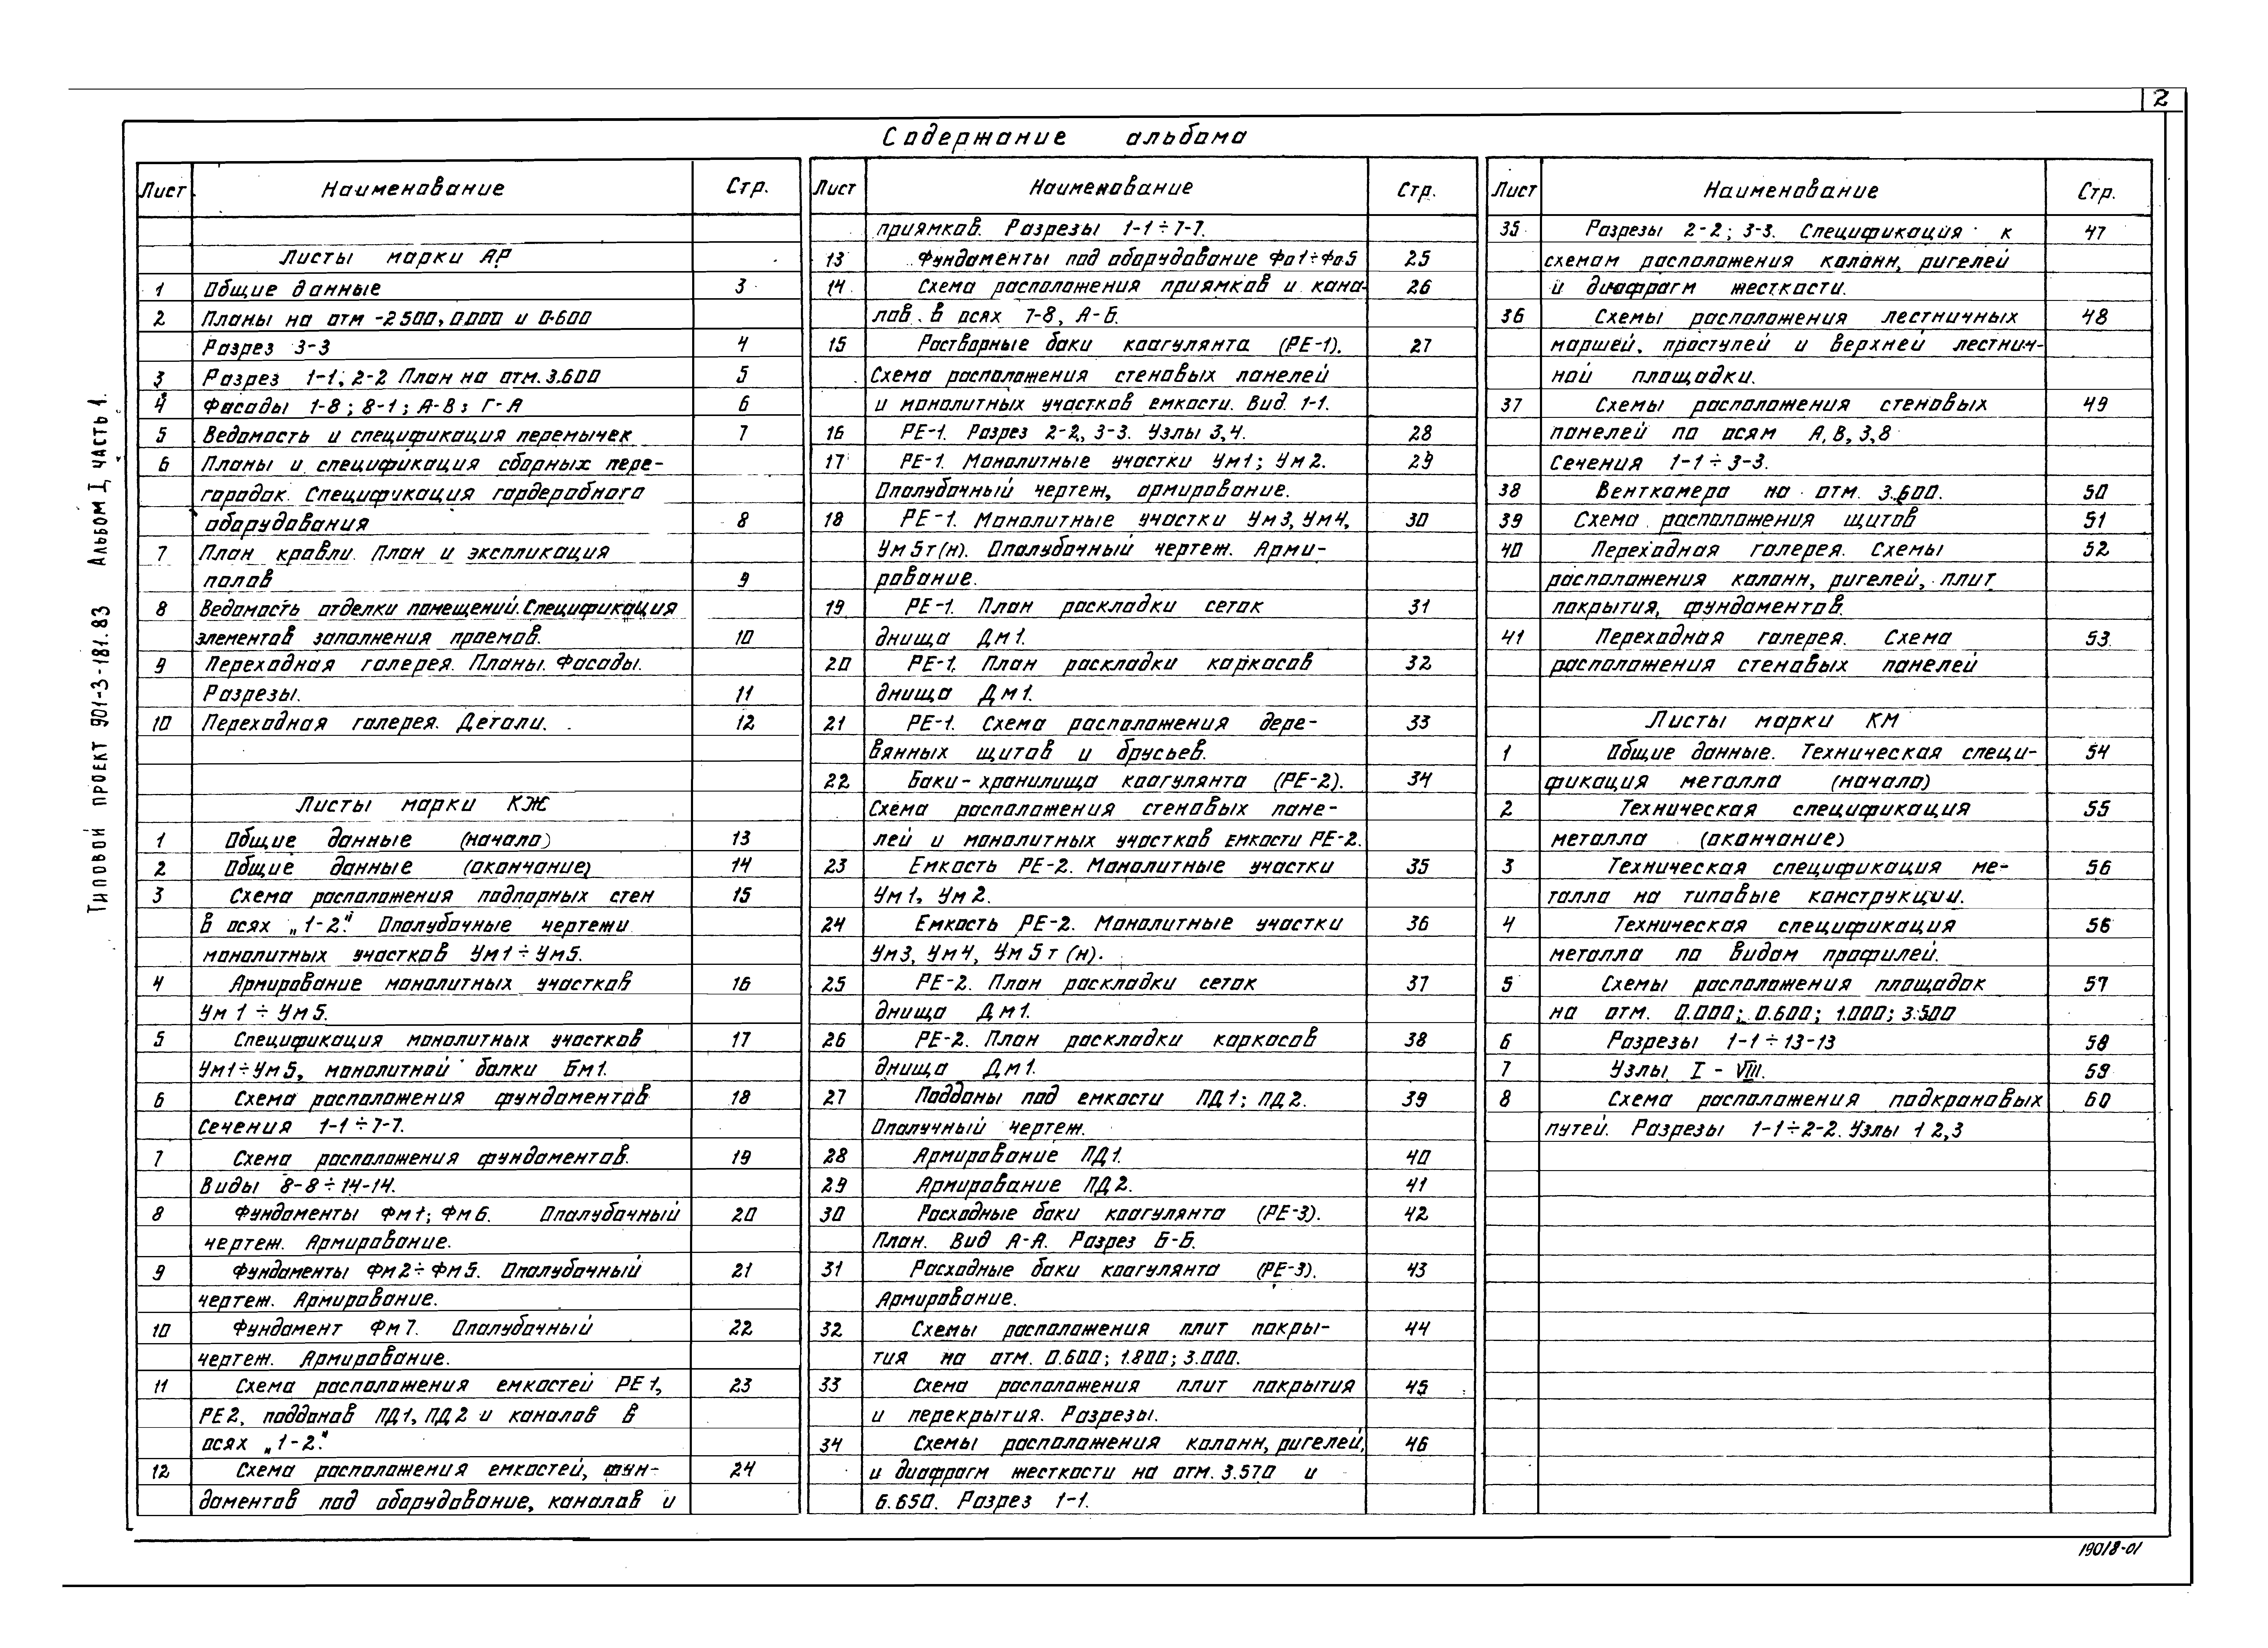 2
Содержание альбома
Типовой проект 901-3-181.83 Альбом I, часть 1.
Лист Наименование Стр.
Листы марки АР
1 Общие данные 3
2 Планы на отм -2500, 0.000 и 0.600
Разрез 3-3 4
3 Разрез 1-1; 2-2 План на отм. 3.600 5
4 Фасады 1-8; 8-1; А-В; Г-А 6
5 Ведомость и спецификация перемычек 7
6 Планы и спецификация сборных пере-
городок. Спецификация гардеробного
оборудования 8
7 План кровли. План и экспликация
полов 9
8 Ведомость отделки помещений. Спецификация
элементов заполнения проемов. 10
9 Переходная галерея. Планы. Фасады.
Разрезы. 11
10 Переходная галерея. Детали. 12
Листы марки КЖ
1 Общие данные (начало) 13
2 Общие данные (окончание) 14
3 Схема расположения подпорных стен 15
в осях „1-2". Опалубочные чертежи
монолитных участков Ум1÷Ум5.
4 Армирование монолитных участков 16
Ум 1 ÷ Ум 5.
5 Спецификация монолитных участков 17
Ум1÷Ум5, монолитной балки Бм1.
6 Схема расположения фундаментов 18
Сечения 1-1÷7-7.
7 Схема расположения фундаментов. 19
Виды 8-8÷14-14.
8 Фундаменты Фм1; Фм6. Опалубочный 20
чертеж. Армирование.
9 Фундаменты Фм2÷Фм5. Опалубочный 21
чертеж. Армирование.
10 Фундамент Фм7. Опалубочный 22
чертеж. Армирование.
11 Схема расположения емкостей РЕ1, 23
РЕ2, поддонов ПД1, ПД2 и каналов в
осях „1-2"
12 Схема расположения емкостей, фун- 24
даментов под оборудование, каналов и
Лист Наименование Стр.
приямков. Разрезы 1-1÷7-7.
13 Фундаменты под оборудование Фо1÷Фо5 25
14 Схема расположения приямков и кана- 26
лов в осях 7-8, А-Б.
15 Растворные баки коагулянта (РЕ-1). 27
Схема расположения стеновых панелей
и монолитных участков емкости. Вид 1-1.
16 РЕ-1. Разрез 2-2, 3-3. Узлы 3,4. 28
17 РЕ-1. Монолитные участки Ум1; Ум2. 29
Опалубочный чертеж, армирование.
18 РЕ-1. Монолитные участки Ум3, Ум4, 30
Ум5т(н). Опалубочный чертеж. Арми-
рование.
19 РЕ-1. План раскладки сеток 31
днища Дм1.
20 РЕ-1. План раскладки каркасов 32
днища Дм1.
21 РЕ-1. Схема расположения дере- 33
вянных щитов и брусьев.
22 Баки-хранилища коагулянта (РЕ-2). 34
Схема расположения стеновых пане-
лей и монолитных участков емкости РЕ-2.
23 Емкость РЕ-2. Монолитные участки 35
Ум1, Ум2.
24 Емкость РЕ-2. Монолитные участки 36
Ум3, Ум4, Ум5т(н).
25 РЕ-2. План раскладки сеток 37
днища Дм1.
26 РЕ-2. План раскладки каркасов 38
днища Дм1.
27 Поддоны под емкости ПД1; ПД2. 39
Опалучный чертеж.
28 Армирование ПД1. 40
29 Армирование ПД2. 41
30 Расходные баки коагулянта (РЕ-3). 42
План. Вид А-А. Разрез Б-Б.
31 Расходные баки коагулянта (РЕ-3). 43
Армирование.
32 Схемы расположения плит покры- 44
тия на отм. 0.600; 1.800; 3.000.
33 Схема расположения плит покрытия 45
и перекрытия. Разрезы.
34 Схемы расположения колонн, ригелей, 46
и диафрагм жесткости на отм. 3.570 и
6.650. Разрез 1-1.
Лист Наименование Стр.
35 Разрезы 2-2; 3-3. Спецификация к 47
схемам расположения колонн, ригелей
и диафрагм жесткости.
36 Схемы расположения лестничных 48
маршей, проступей и верхней лестнич-
ной площадки.
37 Схемы расположения стеновых 49
панелей по осям А, В, 3, 8
Сечения 1-1÷3-3.
38 Венткамера на отм. 3.600. 50
39 Схема расположения щитов 51
40 Переходная галерея. Схемы 52
расположения колонн, ригелей, плит
покрытия, фундаментов.
41 Переходная галерея. Схема 53
расположения стеновых панелей
Листы марки КМ
1 Общие данные. Техническая специ- 54
фикация металла (начало)
2 Техническая спецификация 55
металла (окончание)
3 Техническая спецификация ме- 56
талла на типовые конструкции.
4 Техническая спецификация 56
металла по видам профилей.
5 Схемы расположения площадок 57
на отм. 0.000; 0.600; 1.000; 3.500
6 Разрезы 1-1÷13-13 58
7 Узлы I - VIII. 59
8 Схема расположения подкрановых 60
путей. Разрезы 1-1÷2-2. Узлы 1 2,3
19018-01